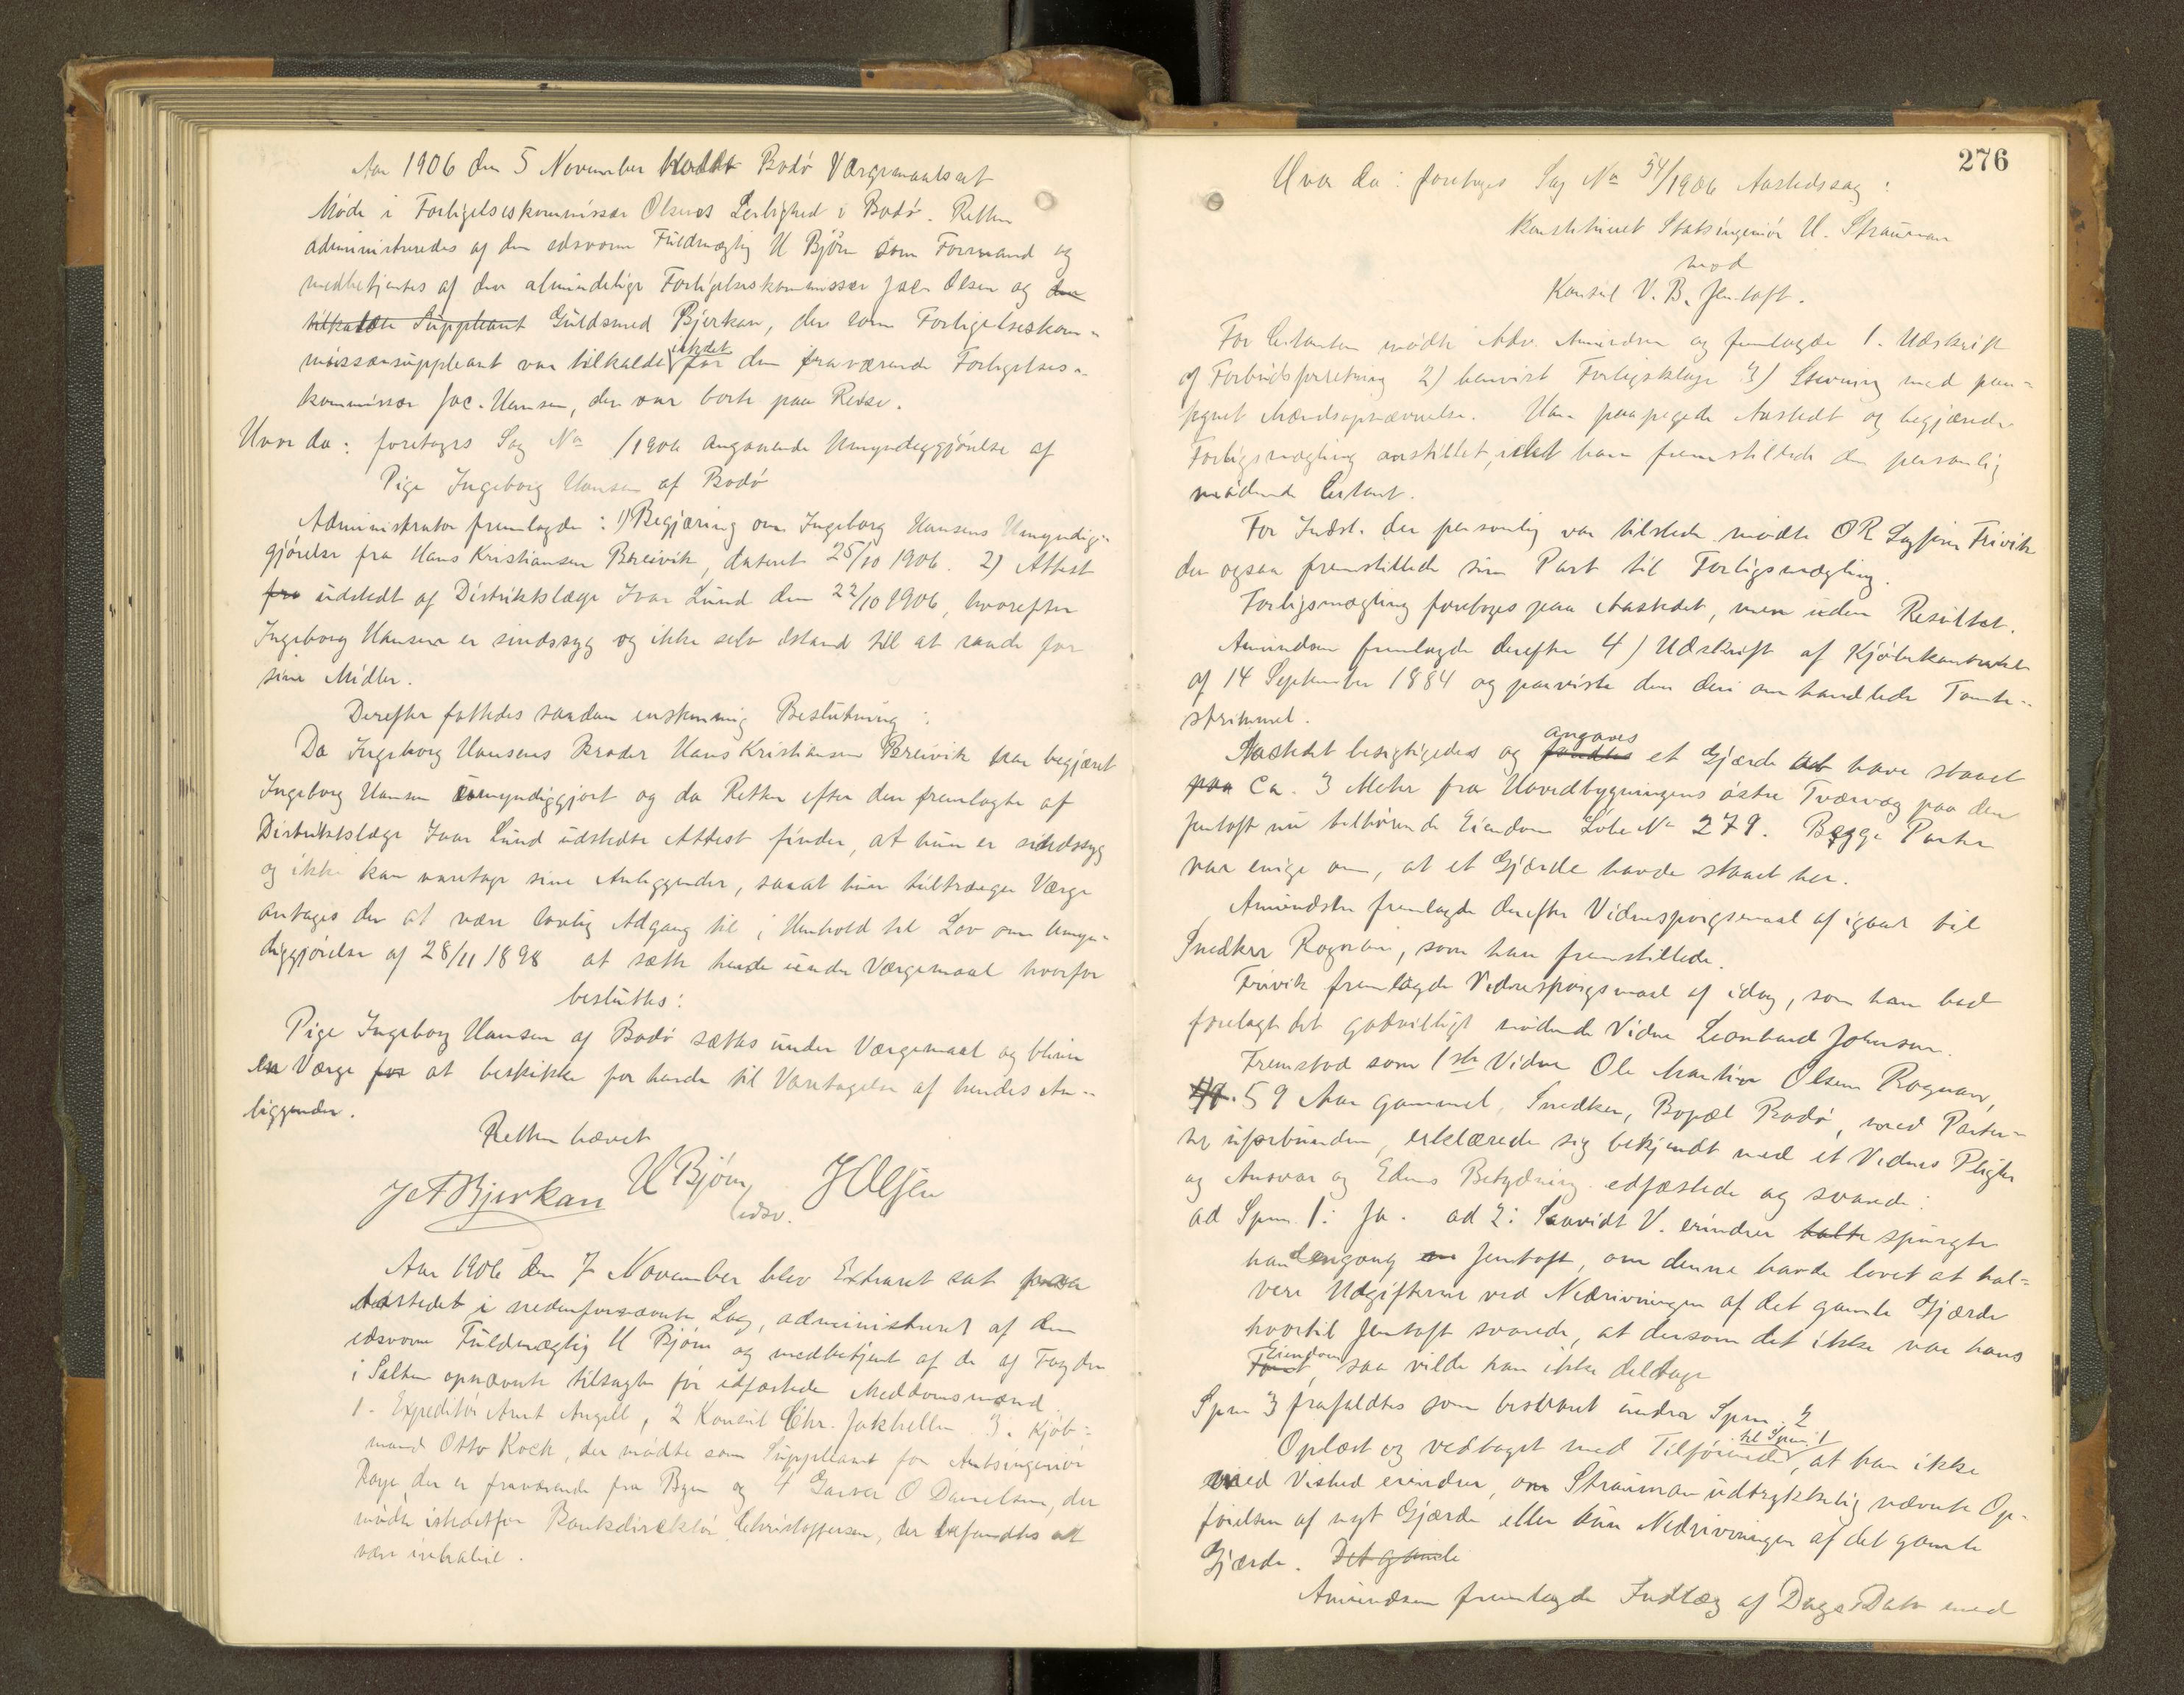 Aar 1906 den 5 November holdt Bodö Værgemaalsret
Möde i Forligelseskommissær Olsens Leilighed i Bodö. Retten
administreredes af den edsvorne Fuldmægtig U Björn som Formand og
medbetjentes af den almindelige Forligelseskommissær Jac Olsen og den
tilkaldte Suppleant Guldsmed Bjerkan, der som Forligelseskom-
missærsuppleant var tilkaldt istedet for den fraværende Forligelses-
kommissær Jac. Hansen, der var borte paa Reise.
Hvor da: foretoges Sag No /1906 angaaende Umyndiggjörelse af
Pige Ingeborg Hansen af Bodö
Administrator fremlagde: 1) Begjæring om Ingeborg Hansens Umyndig-
gjörelse fra Hans Kristiansen Breivik, dateret 25/10 1906. 2) Attest
fra udstedt af Distriktslæge Ivar Lund den 22/10 1906, hvorefter
Ingeborg Hansen er sindssyg og ikke selv istand til at raade for
sine Midler.
Derefter fattedes saadan enstemmig Beslutning:
Da Ingeborg Hansens Broder Hans Kristiansen Breivik har begjæret
Ingeborg Hansen umyndiggjort og da Retten efter den fremlagte af
Distriktslæge Ivar Lund udstedte Attest finder, at hun er sindssyg
og ikke kan varetage sine Anliggender, saaat hun tiltrænger Værge
antages der at være lovlig Adgang til i Henhold til Lov om Umyn-
diggjörelse af 28/11 1898 at sætte hende under Værgemaal hvorfor
besluttes:
Pige Ingeborg Hansen af Bodö sættes under Værgemaal og bliver
en Værge for at beskikke for hende til Varetagelse af hendes An-
liggender.
Retten hævet
J A Bjerkan U Björn J Olsen
edsv.
Aar 1906 den 7 November blev Extraret sat paa
Aastedet i nedenfornævnte Sag, administreret af den
edsvorne Fuldmægtig U Björn og medbetjent af de af Fogden
i Salten opnævnte tilsagte för edfæstede Meddomsmænd
1. Expeditör Arnt Angell, 2 Konsul Chr. Jakhelln 3. Kjöb-
mand Otto Koch, der mödte som Suppleant for Amtsingeniör
Raye, der er fraværende fra Byen og 4 Garver O Danielsen, der
mödte istedetfor Bankdirektör Christoffersen, der befandtes at
være inhabil.
276
Hvor da: foretoges Sag No 54/1906 Aastedssag:
Konstitueret Statsingeniör U. Strauman
mod
Konsul V. B. Jentoft.
For Citanten mödte Adv. Amundsen og fremlagde 1. Udskrift
af Forbudsforretning 2) henvist Forligsklage 3) Stevning med paa-
tegnet Mændsopnævnelse. Han paapegede Aastedet og begjærede
Forligsmægling anstillet, idet han fremstillede den personlig
mödende Citant.
For Indst. der personlig var tilstede mödte OR Sagförer Trivik
der ogsaa fremstillede sin Part til Forligsmægling.
Forligsmægling foretoges paa Aastedet, men uden Resultat.
Amundsen fremlagde derefter 4) Udskrift af Kjöbekontrakt
af 14 September 1884 og paaviste den deri omhandlede Tomte-
strimmel.
Aastedet besigtigedes og fandtes angaves et Gjærde at have staaet
paa Ca. 3 Meter fra Hovedbygningens östre Tværvæg paa den
Jentoft nu tilhörende Eiendom Löbe No 279. Begge Parter
var enige om, at et Gjærde havde staaet her.
Amundsen fremlagde derefter Vidnespörgsmaal af igaar til
Snedker Rognan, som han fremstillede.
Trivik fremlagde Vidnespörgsmaal af idag, som han bad
forelagt det godvilligt mödende Vidne Leonhard Johnsen.
Fremstod som 1ste Vidne Ole Martin Olsen Rognan,
59 Aar gammel, Snedker, Bopæl Bodö, med Parter-
ne uforbunden, erklærede sig bekjendt med et Vidnes Pligter
og Ansvar og Edens Betydning. edfæstede og svarede:
ad Spm. 1: Ja. ad 2: Saavidt V. erindrer talte spurgte
han engang Jentoft, om denne havde lovet at hal-
vere Udgifterne ved Nedrivningen af det gamle Gjærde
hvortil Jentoft svarede, at dersom det ikke var hans
Tomt Eiendom, saa vilde han ikke deltage
Spm 3 frafaldtes som besvaret under Spm. 2
Oplæst og vedtaget med Tilföiende til Spm. 1, at han ikke
med Vished erindrer, om Strauman udtrykkelig nævnte Op-
förelsen af nyt Gjærde eller kun Nedrivningen af det gamle
Gjærde. Det gamle
Amundsen fremlagde Indlæg af Dags Dato med